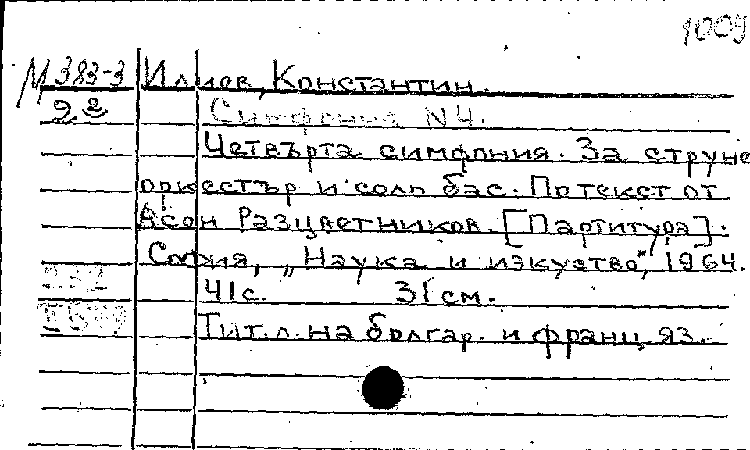 1009
М 383-3 Илиев, Константин.
9 2 Симфония N 4.
Четвърта симфония. За струне
оркестър и соло бас. По текст от
Асен Разцветников. [Партитура].
София, „Наука и изкуство", 1964.
41 с. 31 см.
Тит. л. на болгар. и франц. яз.